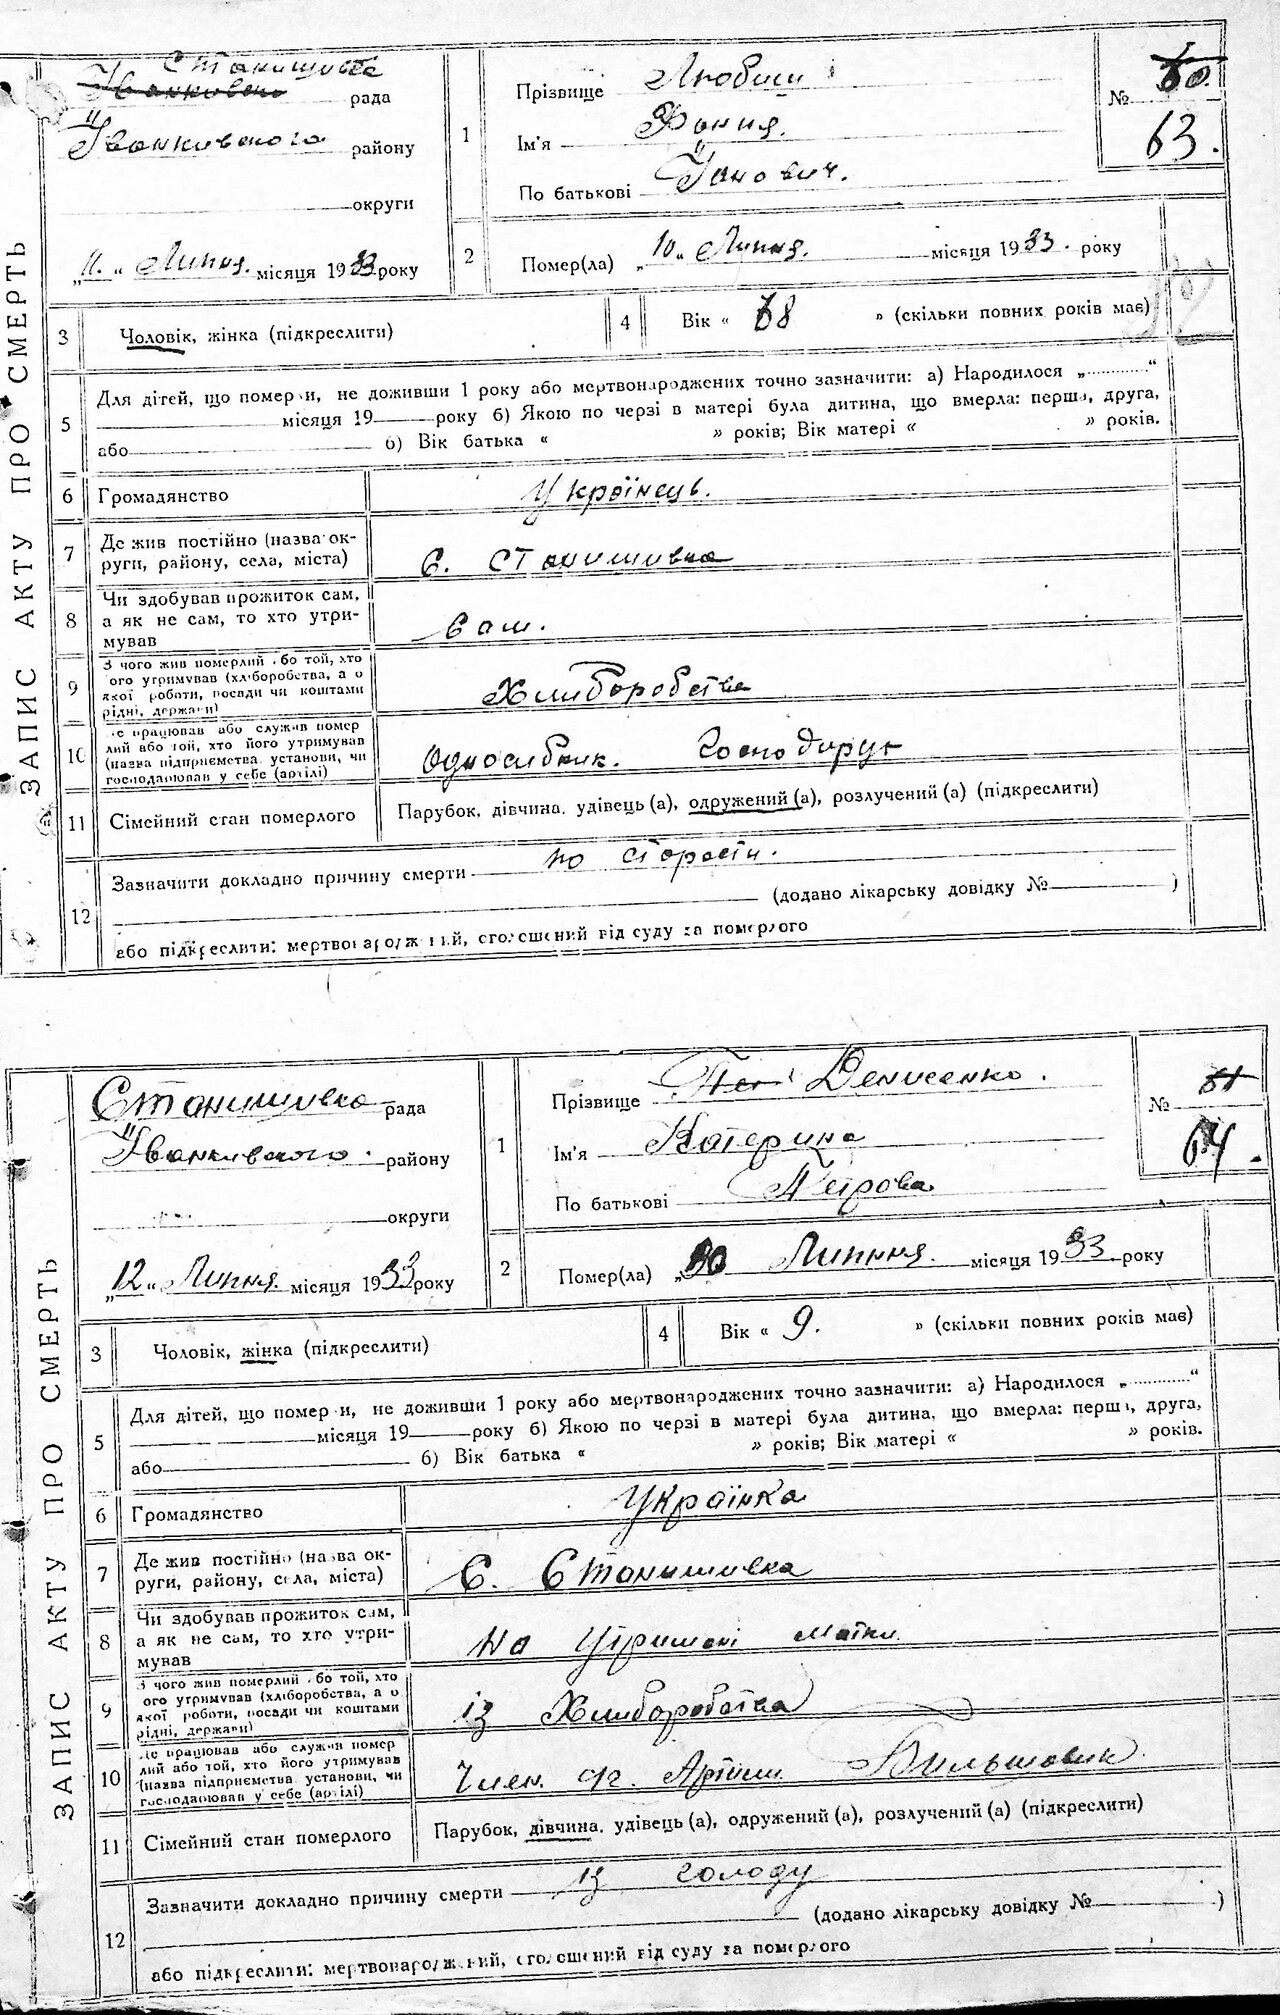 ЗАПИС АКТУ ПРО СМЕРТЬ
Станишивка
Іванковская рада
Їванкивського району
округи
„11.“ Липня. місяця 1933 року
1
Прізвище
Ім'я
По батькові
№ 60.
63.
2
Помер(ла) „10“ Липня. місяця 1933. року
3
Чоловік, жінка (підкреслити)
4
Вік « 68 » (скільки повних років має)
5
Для дітей, що померли, не доживши 1 року або мертвонароджених точно зазначити: а) Народилося „............“
місяця 19 року б) Якою по черзі в матері була дитина, що вмерла: перша, друга,
або б) Вік батька « » років; Вік матері « » років.
6
Громадянство Українець.
7
Де жив постійно (назва ок-
руги, району, села, міста)
С. Станишивка
8
Чи здобував прожиток сам,
а як не сам, то хто утри-
мував
Сам.
9
З чого жив померлий або той, хто
ого утримував (хліборобства, а о
якої роботи, посади чи коштами
рідні, держави)
Хлиборобства
10
де працював або служив помер
лий або той, хто його утримував
(назва підприємства установи, чи
господарював у себе (артілі)
Господарує
11
Сімейний стан померлого
Парубок, дівчина, удівець (а), одружений (а), розлучений (а) (підкреслити)
12
Зазначити докладно причину смерти по старости.
(додано лікарську довідку № )
або підкреслити: мертвонароджений, оголошений від суду за померлого
ЗАПИС АКТУ ПРО СМЕРТЬ
Станишивка рада
Їванкивського. району
округи
„12“ Липня. місяця 1933 року
1
Прізвище Денисенко.
Ім'я Катерина
По батькові Петрова
№ 61
64.
2
Помер(ла) „30 Липння. місяця 1933 року
3
Чоловік, жінка (підкреслити)
4
Вік « 9. » (скільки повних років має)
5
Для дітей, що померли, не доживши 1 року або мертвонароджених точно зазначити: а) Народилося „............“
місяця 19 року б) Якою по черзі в матері була дитина, що вмерла: перша, друга,
або б) Вік батька « » років; Вік матері « » років.
6
Громадянство Українка
7
Де жив постійно (назва ок-
руги, району, села, міста)
С. Станишивка
8
Чи здобував прожиток сам,
а як не сам, то хто утри-
мував
На утримані матки
9
З чого жив померлий або той, хто
ого утримував (хліборобства, а о
якої роботи, посади чи коштами
рідні, держави)
із Хлиборобства
10
де працював або служив помер
лий або той, хто його утримував
(назва підприємства установи, чи
господарював у себе (артілі)
Член Артили Бильшовик
11
Сімейний стан померлого
Парубок, дівчина, удівець (а), одружений (а), розлучений (а) (підкреслити)
12
Зазначити докладно причину смерти із голоду
(додано лікарську довідку № )
або підкреслити: мертвонароджений, оголошений від суду за померлого